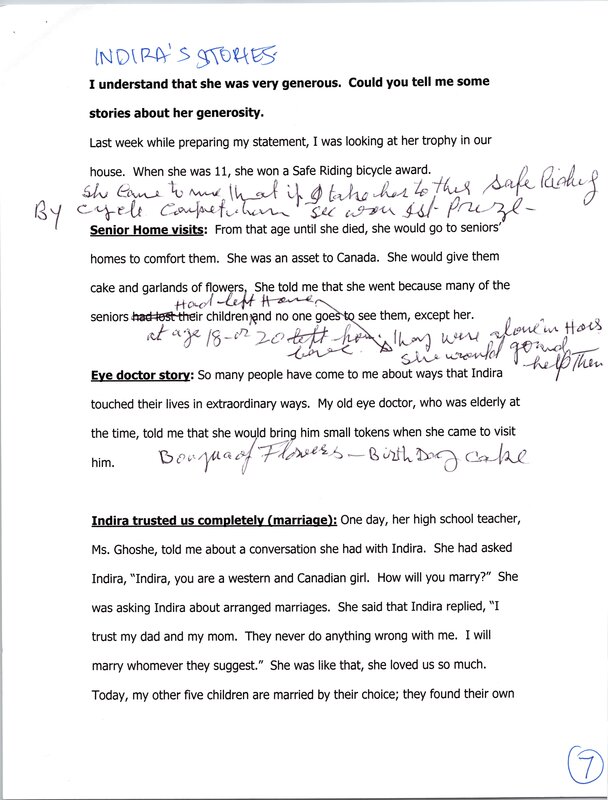 INDIRA'S STORIES
I understand that she was very generous.  Could you tell me some
stories about her generosity.
Last week while preparing my statement, I was looking at her trophy in our
house.  When she was 11, she won a Safe Riding bicycle award.
She came to me that if I take her to this Safe Riding
By cycle Competition see won 1st Prize-
Senior Home visits:  From that age until she died, she would go to seniors'
homes to comfort them.  She was an asset to Canada.  She would give them
cake and garlands of flowers.  She told me that she went because many of the
Had left Home
seniors had lost their children and no one goes to see them, except her.
at age 18-or 20 left home they were alone in
she would go and help them
Eye doctor story: So many people have come to me about ways that Indira
touched their lives in extraordinary ways.  My old eye doctor, who was elderly at
the time, told me that she would bring him small tokens when she came to visit
him.
of Flowers - Birth Day cake
Indira trusted us completely (marriage): One day, her high school teacher,
Ms. Ghoshe, told me about a conversation she had with Indira.  She had asked
Indira, "Indira, you are a western and Canadian girl.  How will you marry?"  She
was asking Indira about arranged marriages.  She said that Indira replied, "I
trust my dad and my mom.  They never do anything wrong with me.  I will
marry whomever they suggest."  She was like that, she loved us so much.
Today, my other five children are married by their choice; they found their own
7